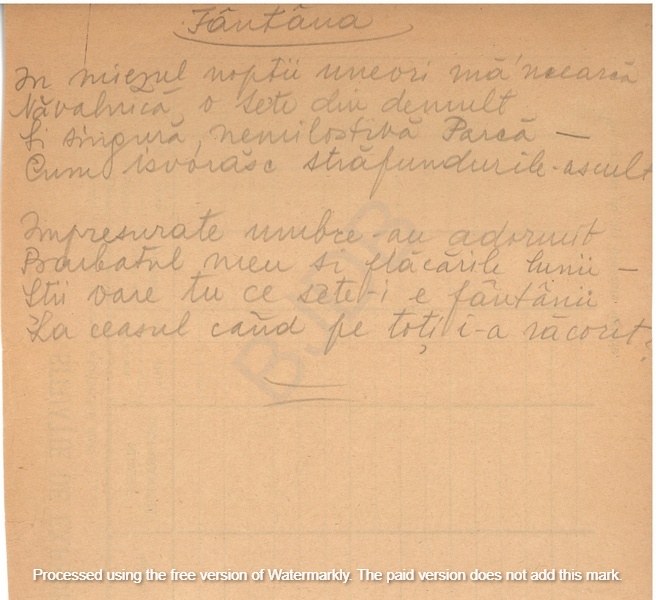 Fântâna
In miezul nopții uneori mă'nnearcă
Năvalnică, o sete din demult
Și singură, nemilostivă Parcă —
Cum isvorăsc străfundurile-ascult
Impresurate umbre-au adormit
Bărbatul meu si flăcările lunii —
Stii oare tu ce sete-i e fântânii
La ceasul când pe toți i-a răcorit?
BJDB
Processed using the free version of Watermarkly. The paid version does not add this mark.